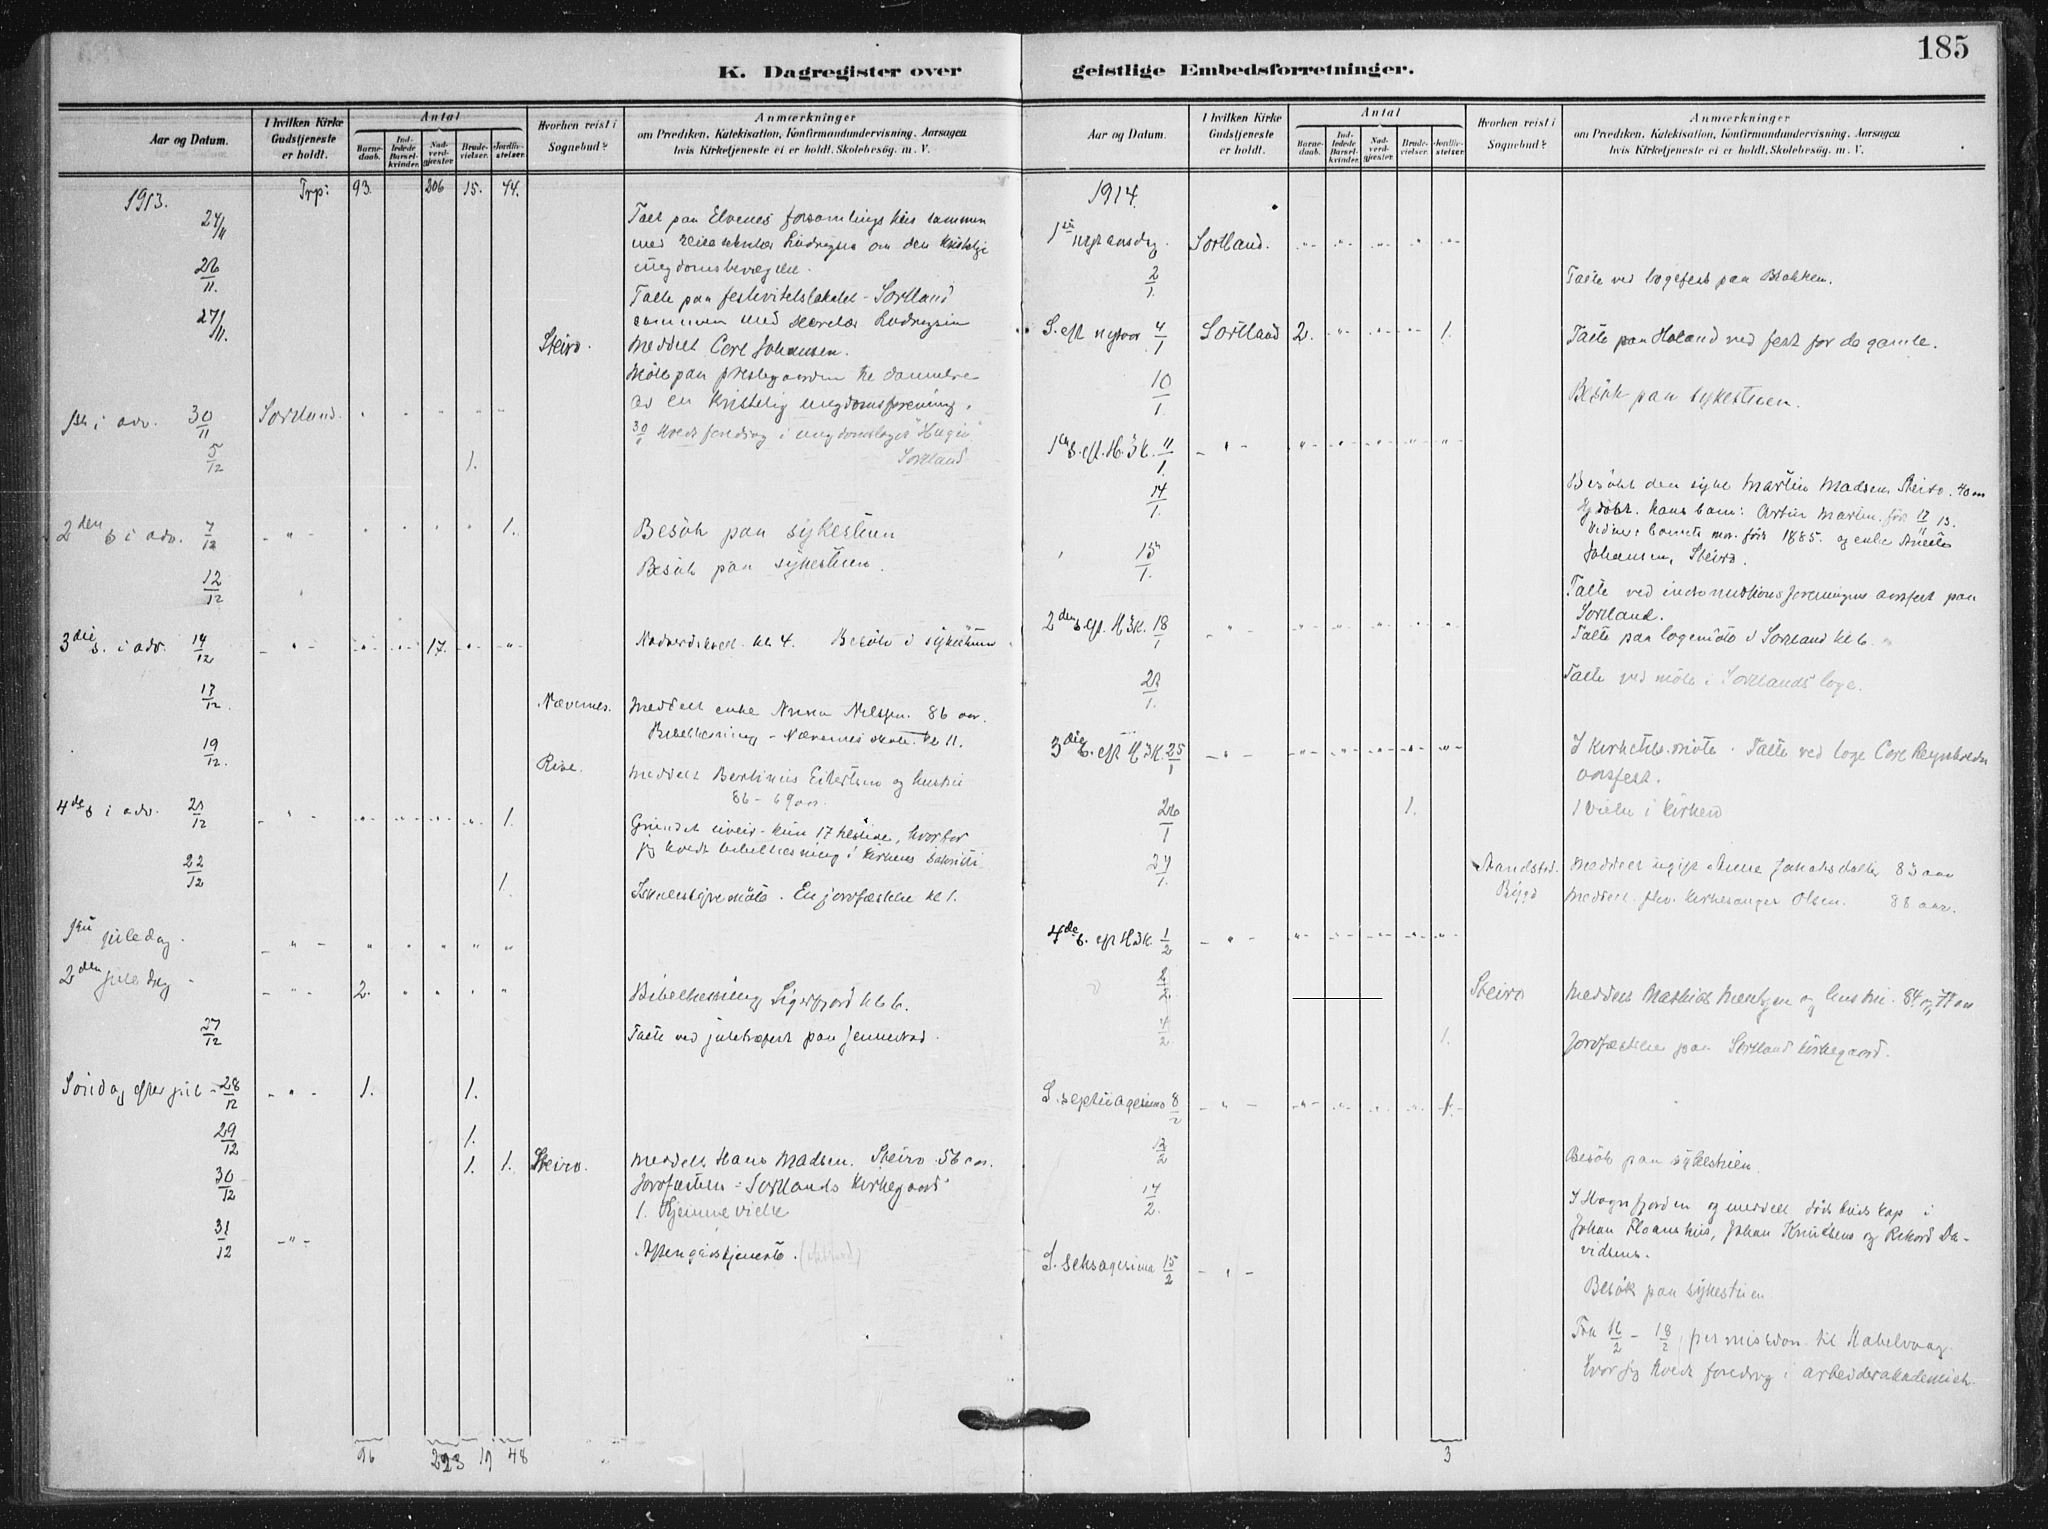 185
K. Dagregister over geistlige Embedsforretninger.
Aar og Datum.
I hvilken Kirke Gudstjeneste er holdt.
Antal
Barnedaab.
Indledede Barselkvinder.
Nadverdgjæster.
Brudevielser.
Jordfæstelser.
Hvorhen reist i Sognebud?
Anmærkninger
om Prædiken, Katekisation, Konfirmandundervisning, Aarsagen
hvis Kirketjeneste ei er holdt, Skolebesøg m. V.
1913. Trp: 93. 206 15. 44.
24/11 Talt paa Elvenes forsamlingshus sammen
med reisesekretær Ludvigsen om den kristelige
ungdomsbevægelse.
26/11. Talte paa festivitetslokalet - Sortland
sammen med sekretær Ludvigsen
27/11. Steiro. Meddelt Carl Johansen.
Møte paa prestegaarden til dannelse
av en kristelig ungdomsforening.
1ste i adv. 30/11 Sortland. " " " " "
30/11 Hvedt foredrag i ungdomslaget "Hugin"
Sortland
5/12 1.
2den s i adv. 7/12 - " - " " " " 1. Besøk paa sykestuen
12/12 Besøk paa sykestuen.
3die s. i adv. 14/12 - " - " " 17. " " Nadverdskveld kl 4. Besøk i sykestuen
17/12. Nævernes. Meddelt enke Anna Nilssen. 86 aar.
Bibellesning - Nævernes skole kl 11.
19/12. Rise. Meddelt Bertinius Eilertsen og hustru
86 - 69 aar.
4de s i adv. 21/12 - " - " " " " 1. Grundet uveir - kun 17 tilstede, hvorfor
jeg hvedt bibellesning i kirkens sakristi
22/12 1. Skolestyremøte. En jordfæstelse kl 1.
1ste juledag. - " - " " " " "
2den juledag - " - 2. " " " " Bibellesning Sigerfjord kl 6.
27/12 Talte ved juletræfest paa Jennestad.
Søndag efter jul - 28/12 - " - 1. 1.
29/12 1.
30/12 1. 1. Steiro. Meddelt Hans Madsen. Steiro 56 aar.
Jordfæstelse - Sortlands kirkegaard
1. Hjemmevielse
31/12 - " - Aftengudstjeneste.
96 223 19 48
Aar og Datum.
I hvilken Kirke Gudstjeneste er holdt.
Antal
Barnedaab.
Indledede Barselkvinder.
Nadverdgjæster.
Brudevielser.
Jordfæstelser.
Hvorhen reist i Sognebud?
Anmærkninger
om Prædiken, Katekisation, Konfirmandundervisning, Aarsagen
hvis Kirketjeneste ei er holdt, Skolebesøg m. V.
1914.
1ste nytaarsdag. Sortland. " " " " "
2/1. Talte ved logefest paa Blokken.
S. eft nytaar 4/1 Sortland 2. " " " 1. Talte paa Holand ved fest for de gamle.
10/1. Besøk paa sykestuen.
1ste s. eft. H.3K. 11/1. - " - " " " " "
14/1. Besøkt den syke Martin Madsen Steiro. 40 aar
Hj.døbt. hans barn: Artur Martin. født 17/11 13.
Videre barnets mor. født 1885. og enke Aneta
Johansen, Steiro.
15/1. Talte ved indremissionsforeningens aarsfest paa
Sortland.
2den s. eft. H3K. 18/1 - " - " " " " " Talte paa logemøte i Sortland kl 6.
21/1. Talte ved møte i Sortlands loge.
3die s. eft H3K. 25/1 - " - " " " " " I kirketilsmøte. Talte ved loge Carl Reynholds
aarsfest.
26/1 1. 1 vielse i kirken
27/1. Strandsted. Meddelt ugift Anna Jakobsdatter 83 aar
Bygd Meddelt fhv. kirkesanger Olsen. 88 aar.
4de s. eft H3K. 1/2 - " - " " " " "
2/2. Steiro Meddelt Mathias Mentzen og hustru. 84 og 77 aar
4/2 1. Jordfæstelse paa Sortland kirkegaard.
S. septuagesima 8/2 - " - " " " " 1.
12/2 Besøk paa sykestuen.
14/2. I Hognfjorden og meddelt dødsbudskap i
Johan Floans hus, Johan Knudsens og Rikard Da-
vidsens.
S. seksagesima 15/2 - " - Besøk paa sykestuen
Fra 16/2 - 18/2 permission til Kabelvaag
hvor jeg hvedt foredrag i arbeiderakademiet.
3